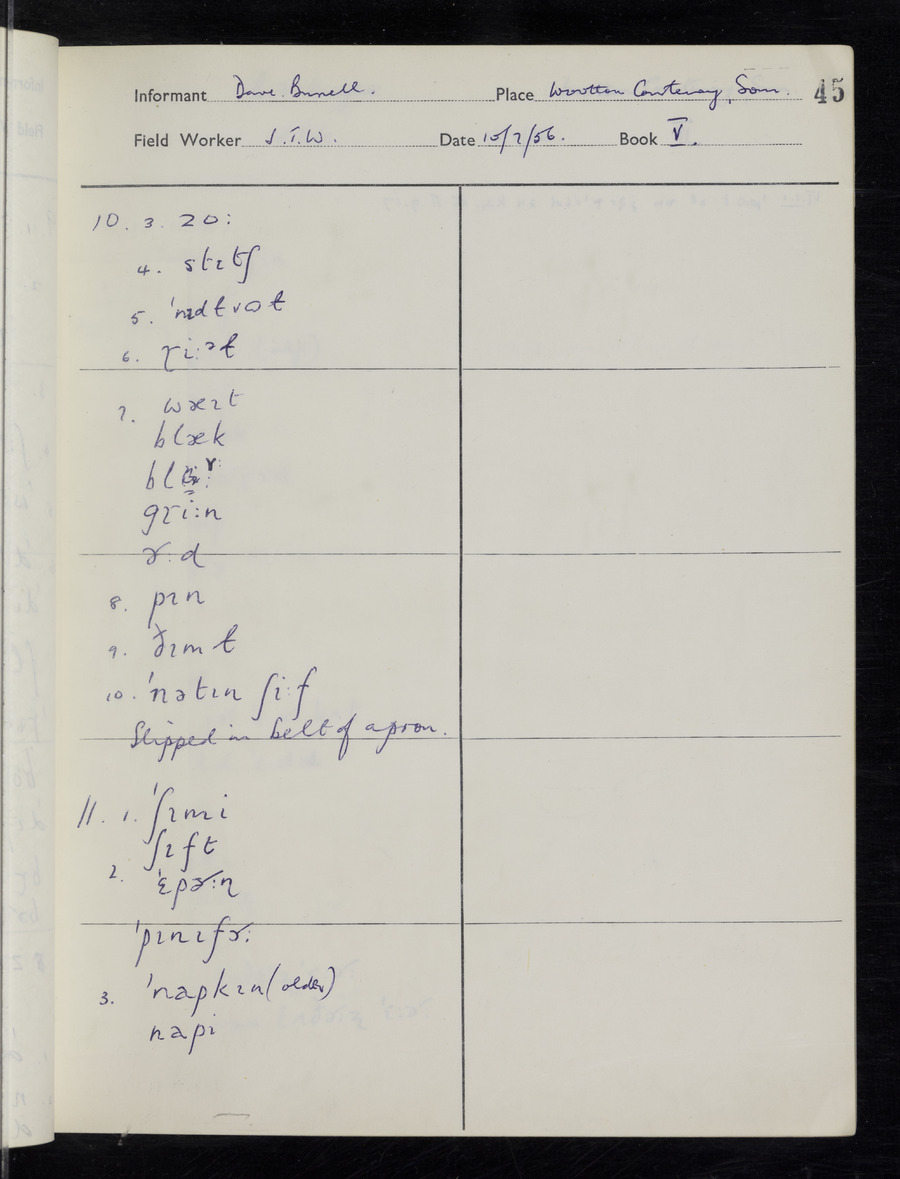 Informant Dave Burrell. Place Wootton Courtenay, Som. 45
Field Worker J.T.W. Date 10/7/56. Book V.
10. 3. zo:
4. stɪtʃ
5. 'nɪdɫvʊɫ
6. ɽi:əɫ
7. wæɪt
blæk
gɽi:n
ɚ:d
8. pɪn
9. ðɪmɫ
10. 'nətɪn ʃi:f
Slipped in belt of apron.
11. 1. 'ʃɪmi
ʃɪft
2. 'ɛpɚ:n
'pɪnɪfɚ:
3. 'napkɪn (older)
napi